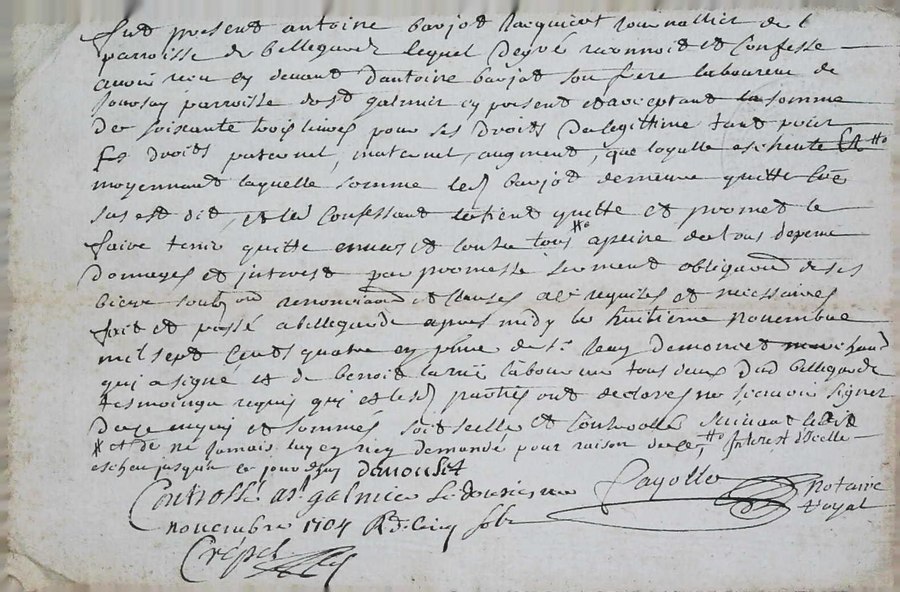 fut present antoine baujot journallier de l
parroisse de bellegarde lequel de gré reconnoit et confesse
avoir receu cy devant d'antoine baujot son frere laboureur de
parroisse de st galmier cy present et acceptant la somme
de soixante trois livres pour ses droits de legitime tant pour
ses droits paternel, maternel, augment, que loyalle escheute
moyennant laquelle somme led baujot demeure quitte
sus est dit, et led confessant le tient quitte et promet le
faire tenir quitte envers et contre tous a peine de tous despens
domages et interest par promesse serment obligaon de ses
biens soub renonciaons et clauses a ce requises et necessaires
fait et passé a bellegarde apres midy le huitieme novembre
mil sept cents quatre en pnce de sr demonict marchand
qui a signé et de benoit laboureur tous deux dud bellegarde
tesmoings requis qui et lesd parties ont declares ne scavoir signer
de ce enquis et sommés soit scellé et controollé suivant ledit
# et de ne jamais luy en rien demander pour raison de ce, interest d'icelle
escheu jusqu'a ce jourd'huy demonict
Controllé a st galmier le douzieme Cayolle notaire royal
novembre 1704 R d cinq sols
Crépet